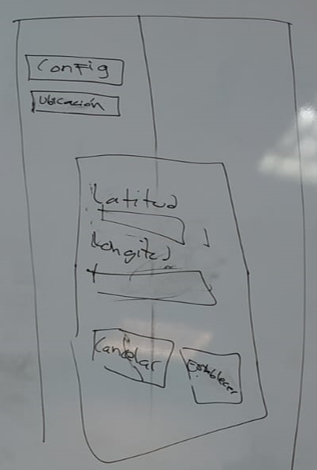 Config
Ubicación
Latitud
Longitud
Cancelar
Establecer